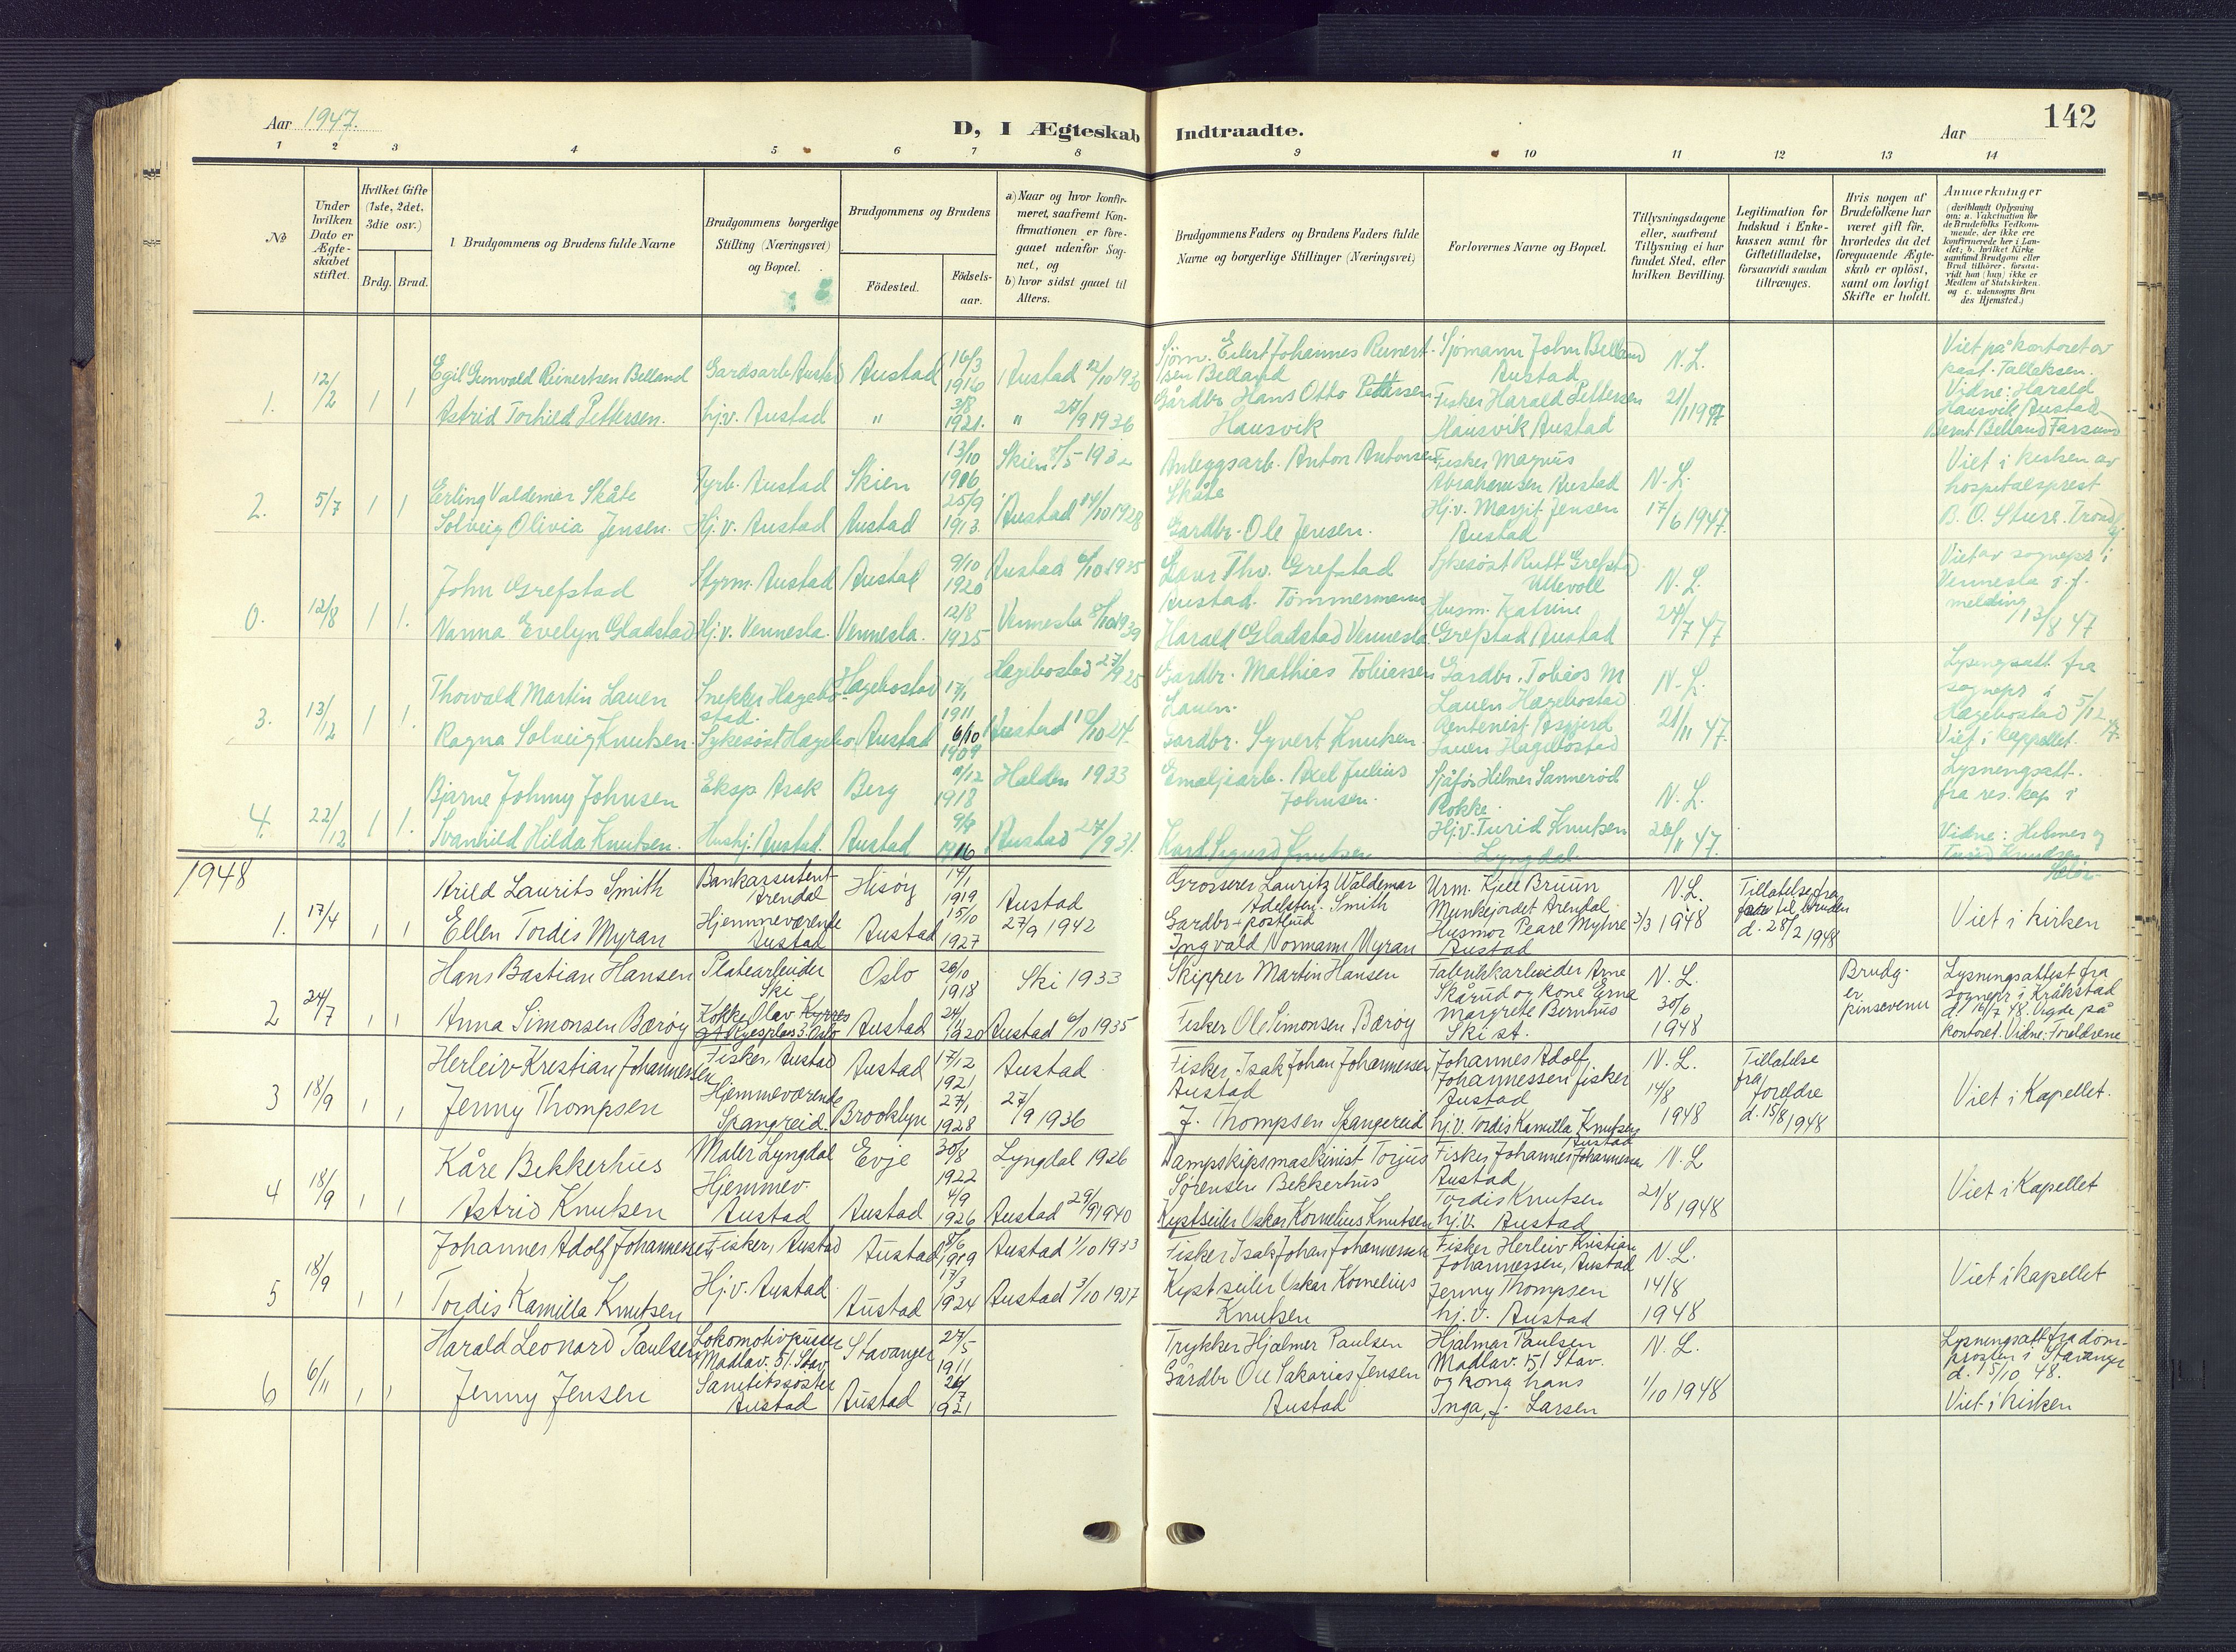 142
Aar 1947.
D, I Ægteskab Indtraadte.
Aar
1 2 3 4 5 6 7 8 9 10 11 12 13 14
No
Under hvilken Dato er Ægteskabet stiftet.
Hvilket Gifte (1ste, 2det, 3die osv.)
Brdg. Brud.
1. Brudgommens og Brudens fulde Navne
Brudgommens borgerlige Stilling (Næringsvei) og Bopæl.
Brudgommens og Brudens
Födested.
Födsels-aar.
a) Naar og hvor konfirmeret, saafremt Konfirmationen er foregaaet udenfor Sognet, og
b) hvor sidst gaaet til Alters.
Brudgommens Faders og Brudens Faders fulde Navne og borgerlige Stillinger (Næringsvei)
Forlovernes Navne og Bopæl.
Tillysningsdagene eller, saafremt Tillysning ei har fundet Sted, efter hvilken Bevilling.
Legitimation for Indskud i Enkekassen samt for Giftetilladelse, forsaavidt saadan tiltrænges.
Hvis nogen af Brudefolkene har været gift för, hvorledes da det foregaaende Ægteskab er oplöst, samt om lovligt Skifte er holdt.
Anmærkninger (deriblandt Oplysning om: a. Vakcination for de Brudefolks Vedkommende, der ikke ere konfirmerede her i Landet; b. hvilket Kirkesamfund Brudgom eller Brud tilhörer, forsaavidt han (hun) ikke er Medlem af Statskirken, og c. udensogns Brudes Hjemsted.)
1. 12/2 1 1
Egil Gunvald Reinertsen Belland Gardsarb. Austad Austad 16/3 1916 Austad 12/10 1930
Astrid Torhild Pettersen. hj.v. Austad " 3/8 1921. " 27/9 1936
Sjöm. Eilert Johannes Reinertsen Belland
Gårdbr. Hans Otto Pettersen Hausvik
Sjömann John Belland Austad
Fisker Harald Pettersen Hausvik Austad
N.L. 21/1 1947
Viet på kontoret av past. Tallaksen. Vidne: Harald Hausvik Austad Bernt Belland Farsund
2. 5/7 1 1
Erling Valdemar Skåte Fyrb. Austad Skien 13/10 1906 Skien 8/5-1932
Solveig Olivia Jensen. Hj.v. Austad Austad 25/9 1913. Austad 14/10 1928
Anleggsarb. Anton Antonsen Skåte
Gardbr. Ole Jensen.
Fisker Magnus Abrahamsen Austad
Hj.v. Margit Jensen Austad
N.L. 17/6 1947.
Viet i kirken av hospitalsprest B. O. Sture.
0. 12/8 1 1.
John Grefstad Styrm. Austad Austad 9/10 1920 Austad 6/10 1935
Evelyn Gladstad Hj.v. Vennesla. Vennesla. 12/8 1925 Vennesla 8/10 1939
Thv. Grefstad Austad. Tömmermann
Harald Gladstad Vennesla.
Sykesöst Rutt Grefstad Ullevoll
Husm. Katrine Grefstad Austad
N.L. 24/7 47
Viet av sognepr. i Vennesla i.f. melding 13/8 47
3. 13/12 1 1.
Thorvald Martin Lauen Snekker Hægebostad. Hægebostad 17/1 1911 Hægebostad 27/9 25
Ragna Solveig Knutsen. Sykesöst Hægebo. Austad 6/10 1909 Austad 10/10 24.
Gardbr. Mathias Tobiassen Lauen.
Gardbr. Syvert Knutsen.
Gardbr. Tobias M Lauen Hægebostad
Rentenist Asgjerd Lauen Hægebostad
N.L. 21/11 47.
Lysningsatt. fra sognepr i Hægebostad 5/12 47. Viet i kappellet.
4. 22/12 1 1.
Bjarne Johnny Johnsen Eksp Asak Berg 9/12 1918 Halden 1933
Svanhild Hilda Knutsen. Hushj. Austad. Austad 9/4 1916 Austad 27/9 31.
Emaljearb. Axel Julius Johnsen.
Karl Sigurd Knutsen
Sjåför Hilmer Sanneröd Rokke.
Hj.v. Turid Knutsen Lyngdal
N.L. 26/11 47.
Lysnengsatt. fra res. kap i
Vidne: Helmer og Turid Knudsen.
1948
1. 17/4 1 1
Arild Laurits Smith Bankassistent Arendal Hisöy 14/1 1919
Ellen Tordis Myran Hjemmeværende Austad Austad 15/10 1927 Austad 27/9 1942
Grosserer Lauritz Waldemar Adelsten Smith
Gardbr + postbud Ingvald Normann Myran
Urm. Kjell Bruun Munkejordet Arendal.
Husmor Peare Myhre Austad
N.L. 3/3 1948
Tillatelse fra far til bruden d. 28/2 1948
Viet i kirken
2 24/7 1 1
Hans Bastian Hansen Platearbeider Ski Oslo 26/10 1918 Ski 1933
Anna Simonsen Bæröy Kokke Olav Kyrres gt Ryesplass 3. Oslo Austad 24/1 1920 Austad 6/10 1935
Skipper Martin Hansen
Fisker Ole Simonsen Bæröy
Fabrikkarbeider Arne Skårud og kone Erna Margrete Bernhus Ski st.
N.L. 30/6 1948
Brudg. er pinsevenn
Lysningsattest fra sognepr i Kråkstad d. 16/7 48. Vigde på kontoret. Vidne: Foreldrene
3 18/9 1 1
Herleiv Kristian Johannessen Fisker, Austad Austad 17/12 1921 Austad
Jenny Thompsen Hjemmeværende Spangreid. Brooklyn 27/1 1928 27/9 1936
Fisker, Isak Johan Johannessen Austad
J. Thompsen Spangereid
Johannes Adolf Johannessen fisker Austad
hj.v. Tordis Kamilla Knutsen Austad
N.L. 14/8 1948
Tillatelse fra foreldre d. 15/8 1948
Viet i Kapellet.
4 18/9 1 1
Kåre Bekkerhus Maler Lyngdal Evje 30/8 1922 Lyngdal 1926
Astrid Knutsen Hjemmev. Austad Austad 4/9 1926 Austad 29/9 1940
Dampskipsmaskinist Torjus Sørensen Bekkerhus
Kystseiler Oskar Kornelius Knutsen
Fisker Johannes Johannessen Austad
Tordis Knutsen hj.v. Austad
N.L 21/8 1948
Viet i Kapellet
5 18/9 1 1
Johannes Adolf Johannessen Fisker, Austad Austad 8/6 1919 Austad 1/10 1933
Tordis Kamilla Knutsen Hj.v. Austad Austad 17/3 1924 Austad 3/10 1937
Fisker Isak Johan Johannessen
Kystseiler Oskar Kornelius Knutsen
Fisker Herleiv Kristian Johannessen, Austad
Jenny Thompsen hj.v. Austad
N.L. 14/8 1948
Viet i kapellet
6 6/11 1 1
Harald Leonard Paulsen Lokomotivpusser Madlav. 51. Stav Stavanger 27/5 1911
Jenny Jensen Sanitetssöster Austad Austad 26/7 1921
Trykker Hjalmer Paulsen
Gårdbr Ole Sakarias Jensen Austad
Hjalmar Paulsen Madlav. 151 Stav. og kona hans Inga, f. Larsen
N.L. 1/10 1948
Lysningsatt fra domprosten i Stavanger d. 15/10 48. Viet i kirken